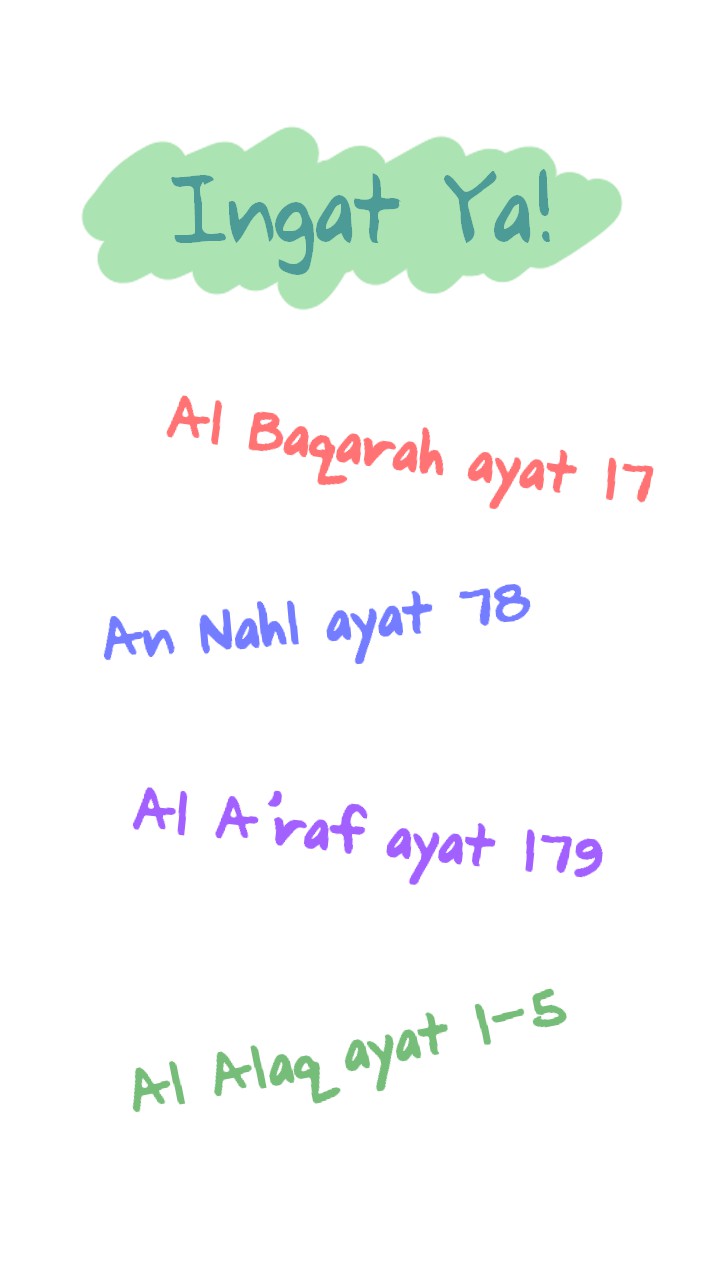 Ingat Ya!
Al Baqarah ayat 17
An Nahl ayat 78
Al A'raf ayat 179
Al Alaq ayat 1-5